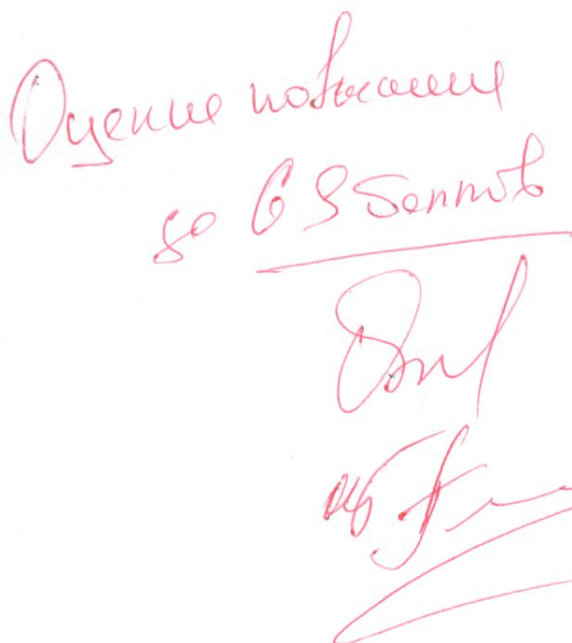 Оценка повышена
до 69 баллов